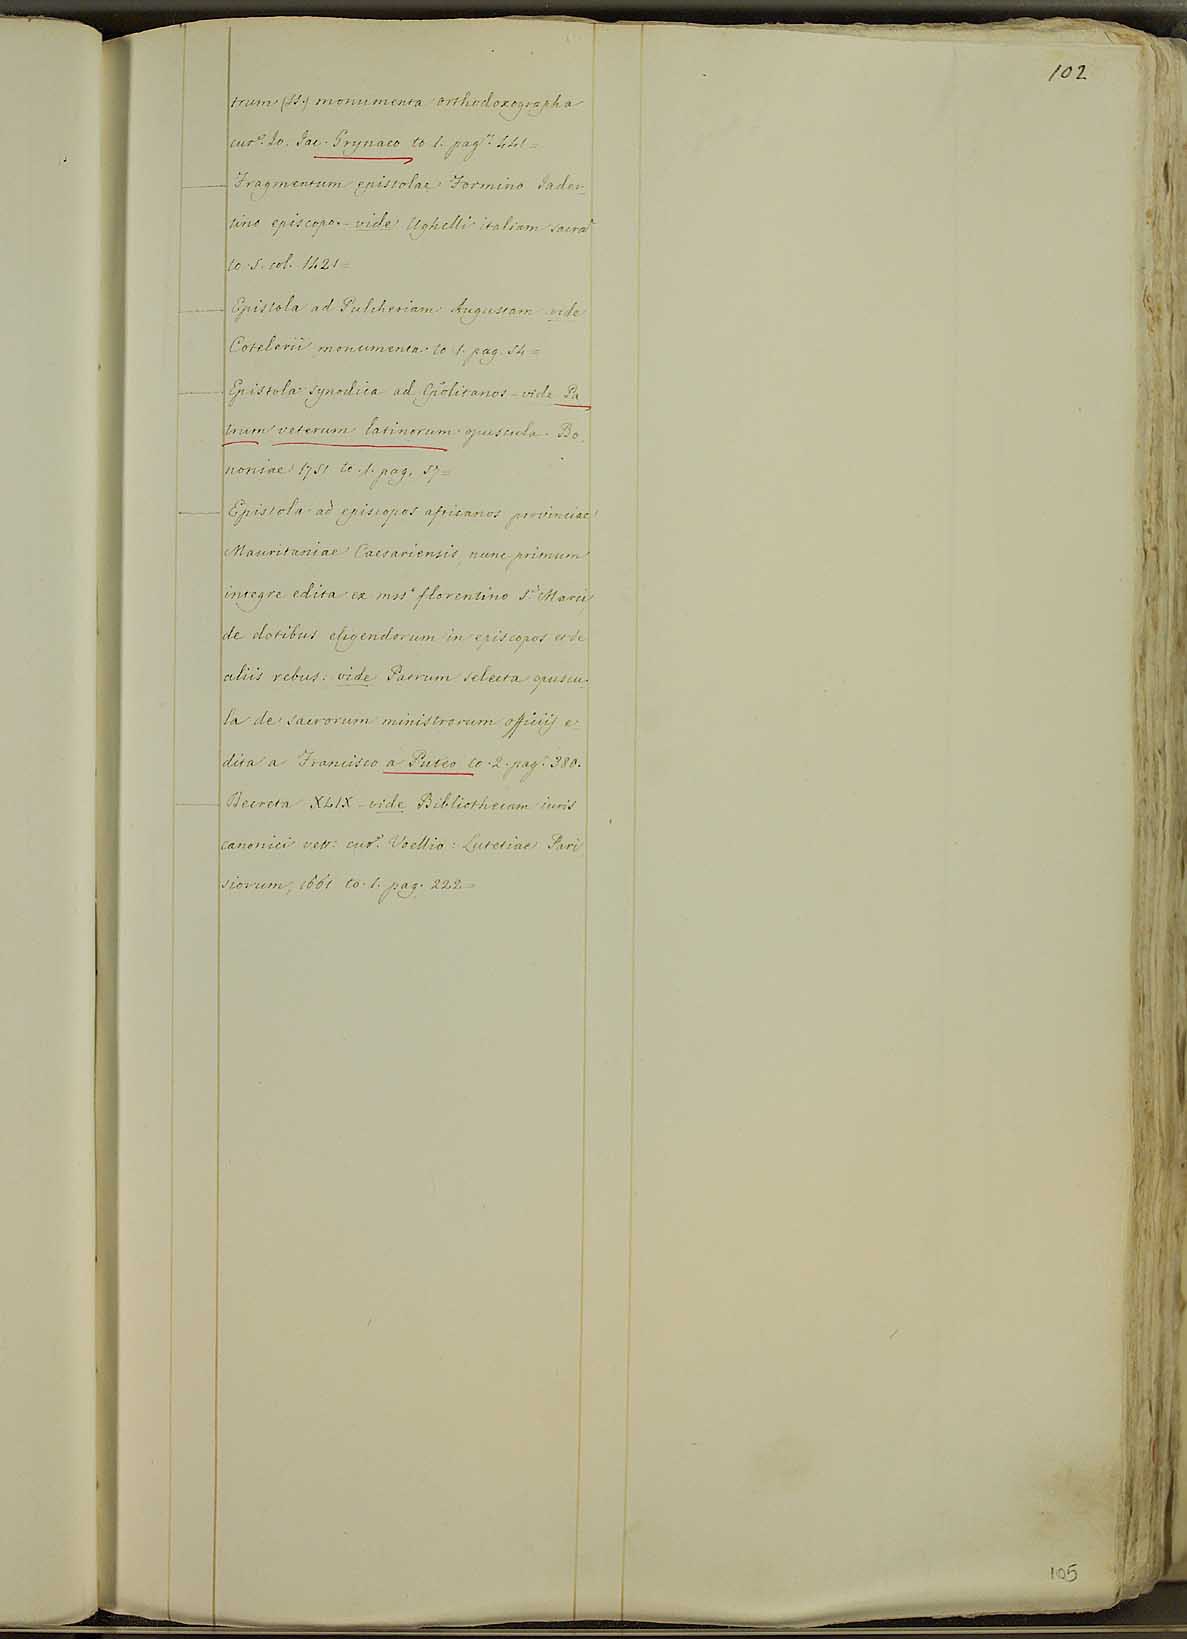 102
trum (SS.) monumenta orthodoxographa
cur.e Io. Iac. Grynaeo to 1. pag.a 441=
Fragmentum epistolae Formino Iader-
tino episcopo - vide Ughelli italiam sacra
to. 5. col. 1421=
Epistola ad Pulcheriam Augustam vide
Cotelerii monumenta to 1. pag. 54=
Epistola synodica ad Cpolitanos - vide Pa
trum veterum latinorum opuscula. Bo
noniae 1751 to. 1. pag. 57=
Epistola ad episcopos africanos provinciae
Mauritaniae Caesariensis, nunc primum
integre edita ex mss.o florentino S.i Marci
de dotibus eligendorum in episcopos et de
aliis rebus: vide Patrum selecta opuscu-
la de sacrorum ministrorum officiis e-
dita a Francisco a Puteo to. 2. pag. 380.
Decreta XLIX - vide Bibliothecam iuris
canonici vet: cur.e Voellio: Lutetiae Pari
siorum, 1661 to. 1. pag. 222=
105